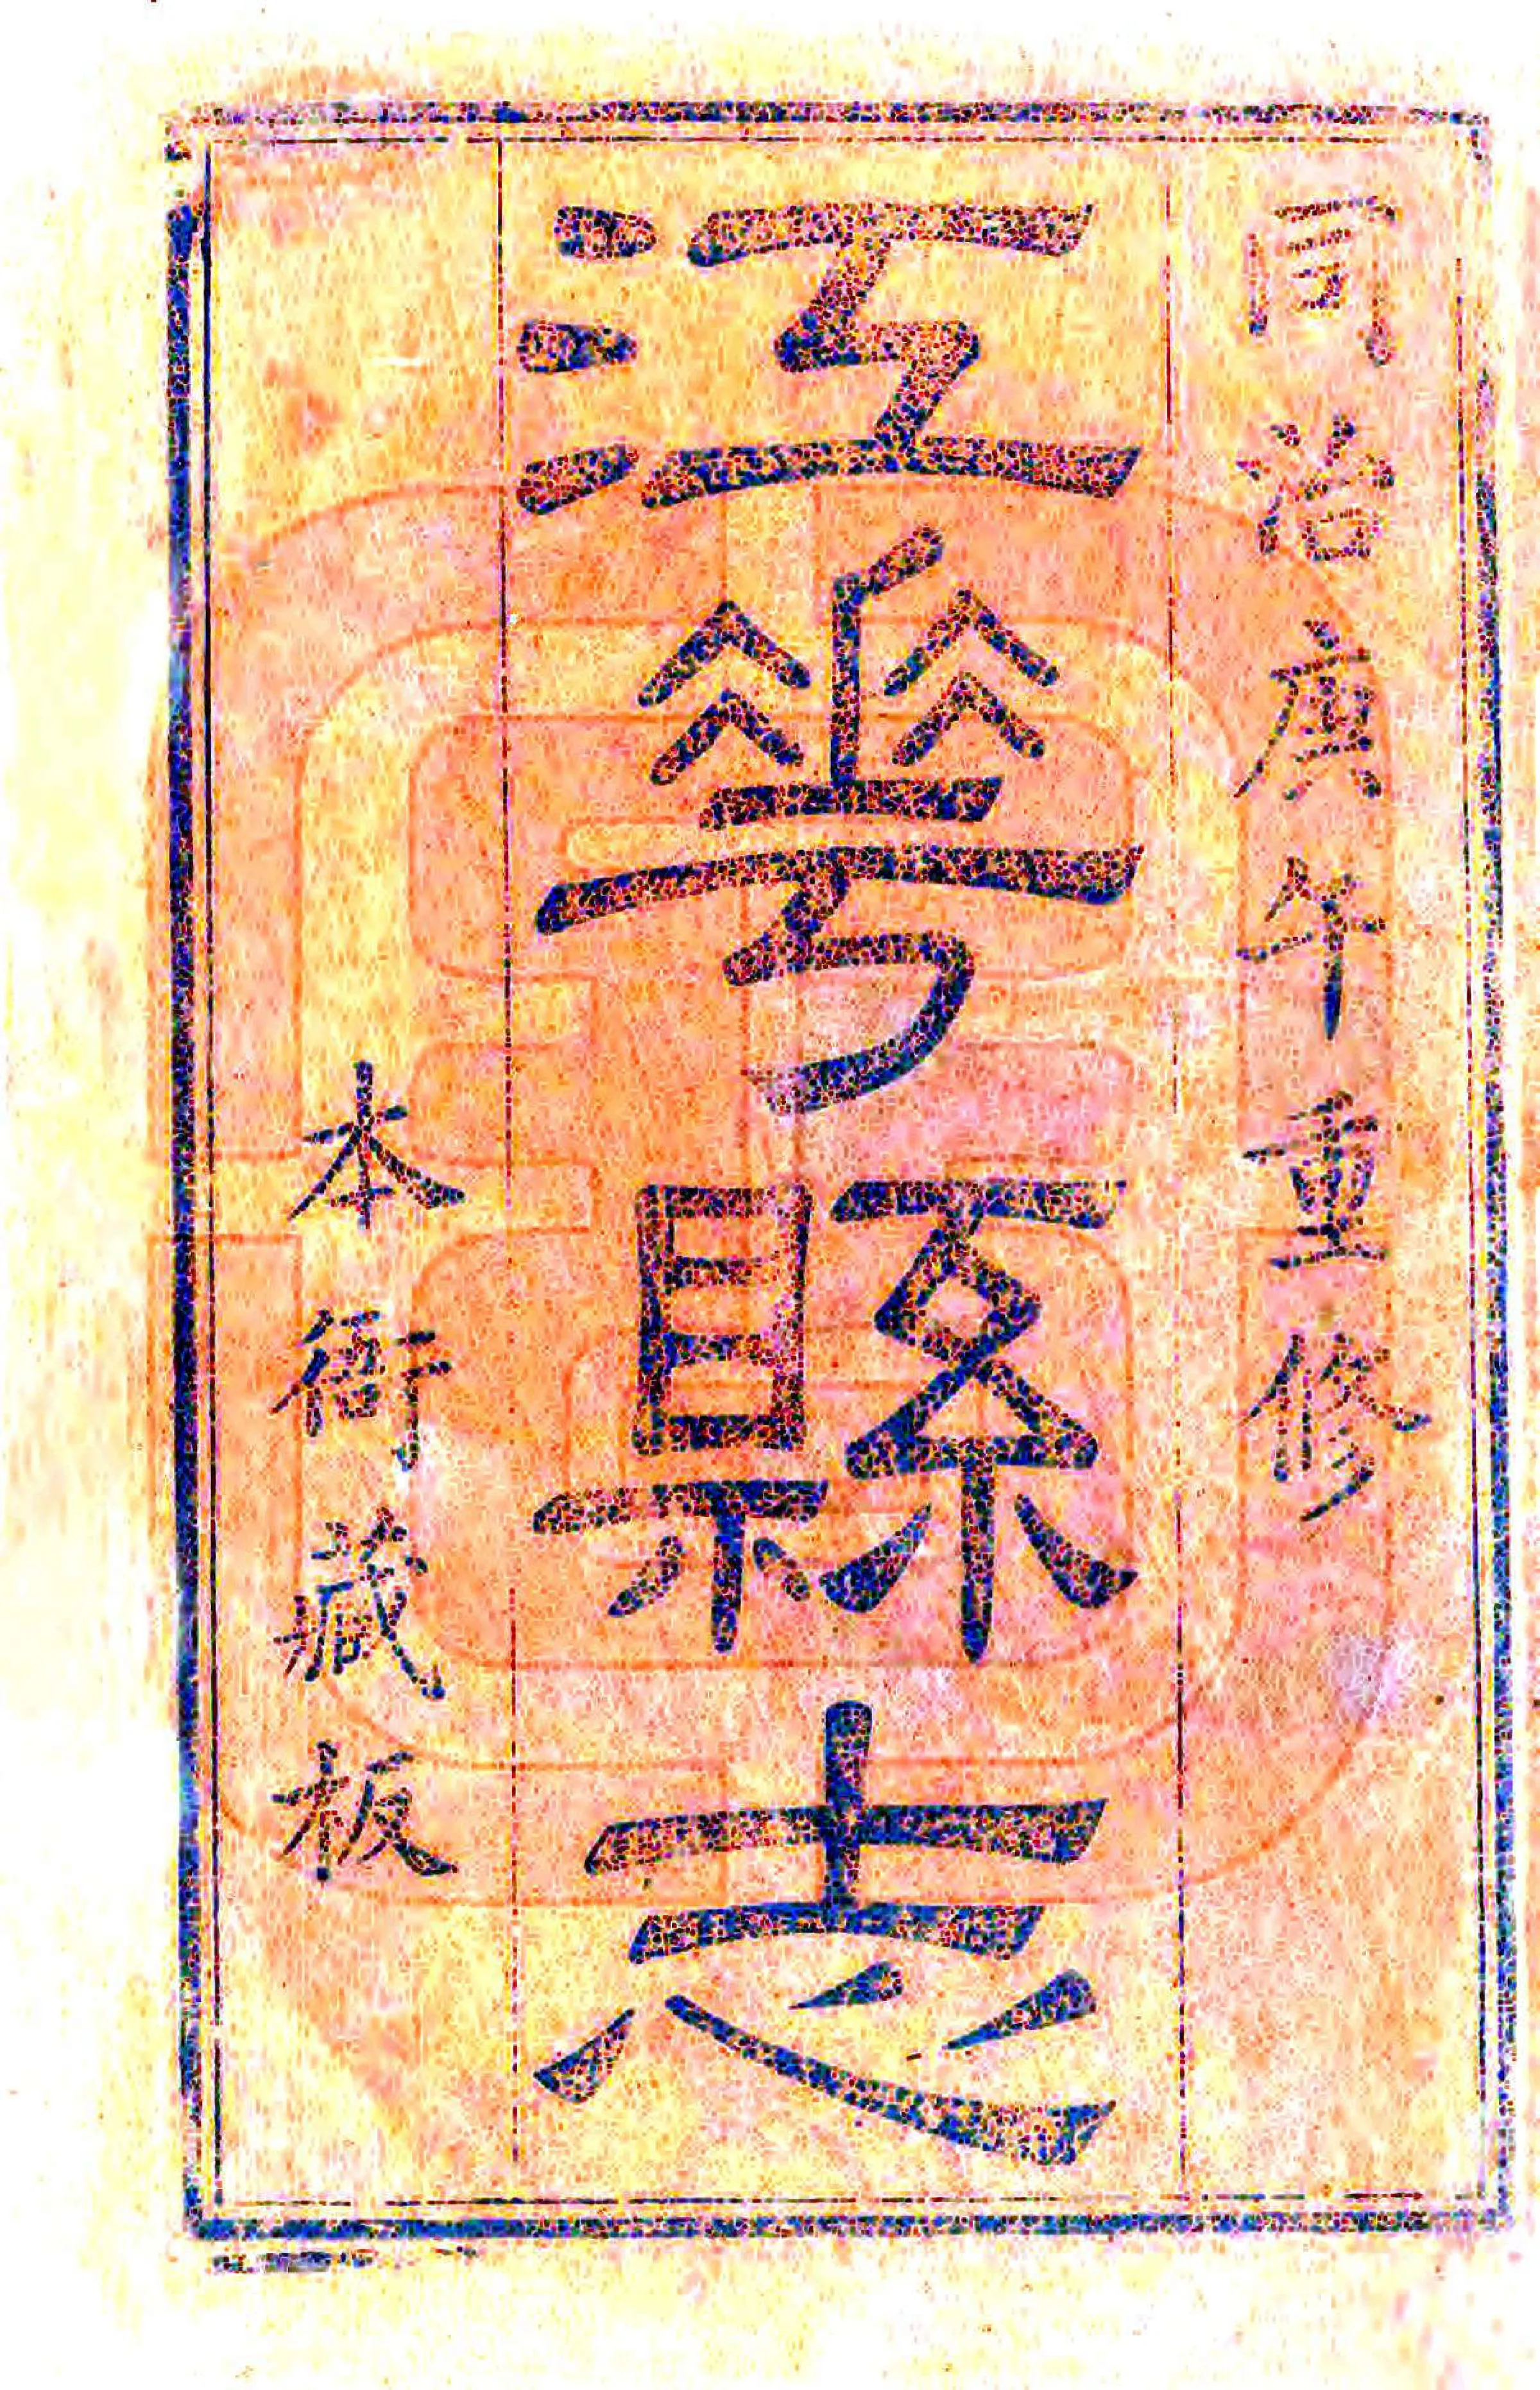 同治庚午重修
江華縣志
本衙藏板